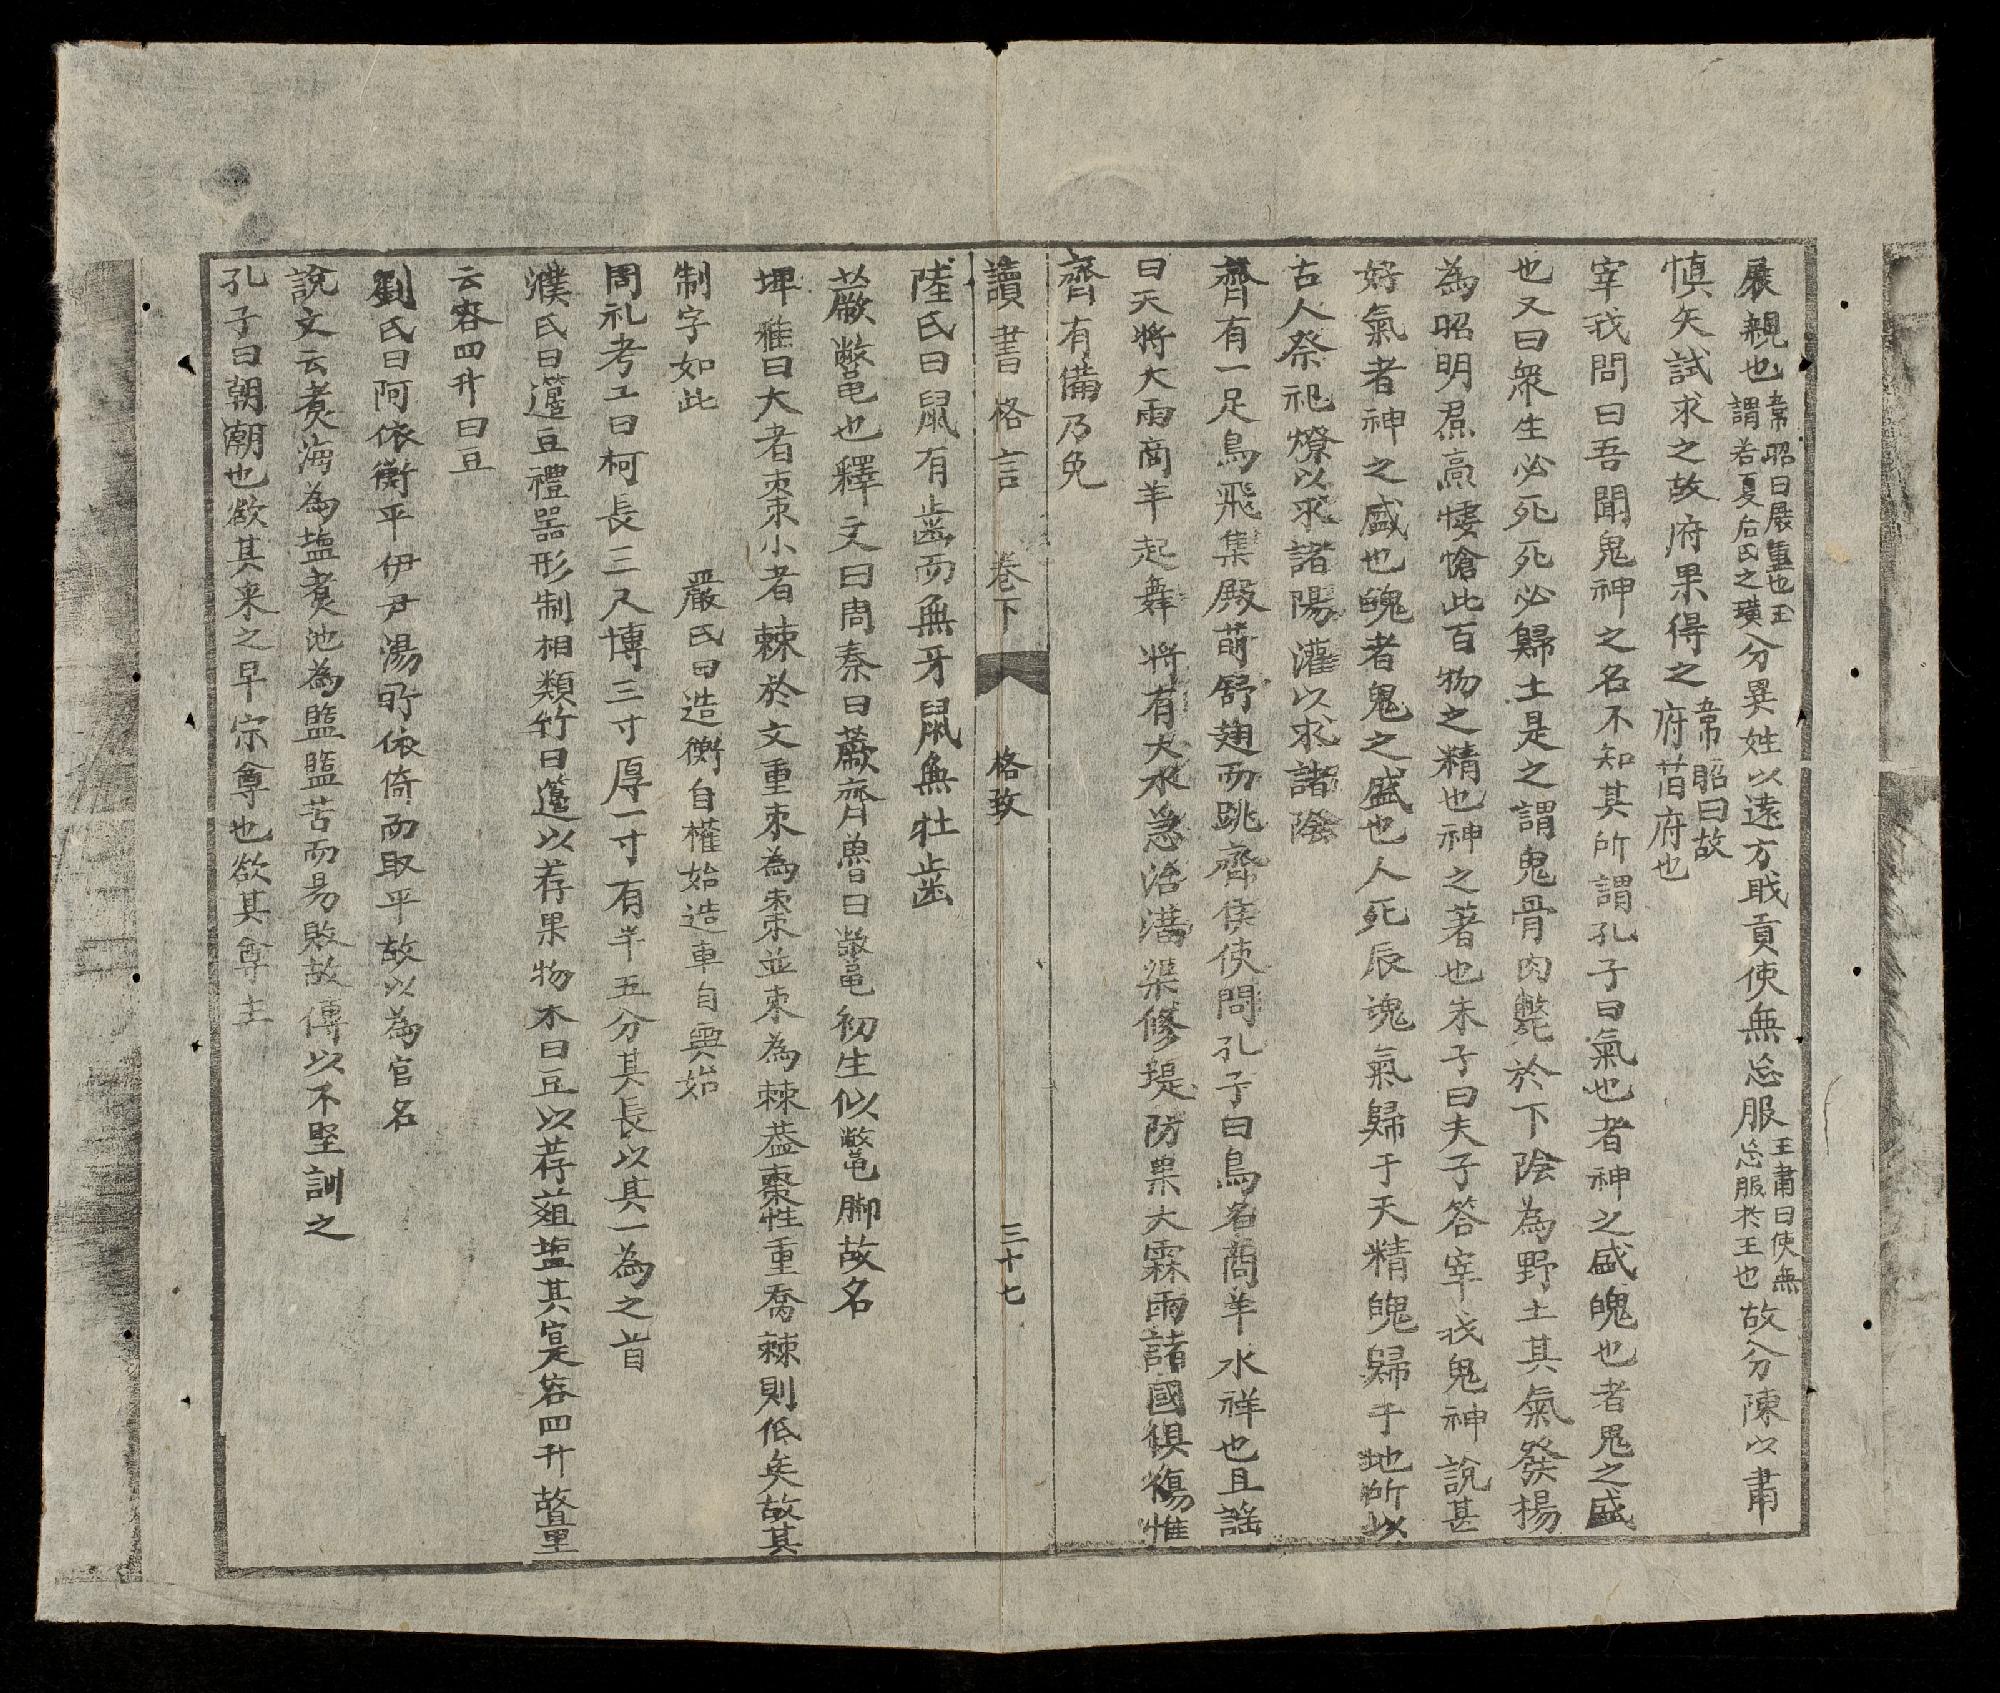 展親也韋昭曰展重也玉謂若夏后氏之璜分異姓以遠方戢貢使無忘服王肅曰使無忘服於王也故分陳以肅
慎矢試求之故府果得之韋昭曰故府昔府也
宰我問曰吾聞鬼神之名不知其所謂孔子曰氣也者神之盛魄也者鬼之盛
也又曰衆生必死死必歸土是之謂鬼骨肉斃於下陰為野土其氣發揚
為昭明焄高悽愴此百物之精也神之著也朱子曰夫子答宰我鬼神說甚
好氣者神之盛也魄者鬼之盛也人死辰魂氣歸于天精魄歸于地所以
古人祭祀燎以求諸陽灌以求諸陰
齊有一足鳥飛集殿前舒翅而跳齊侯使問孔子曰鳥名商羊水祥也且謡
曰天將大雨商羊起舞將有大水急治溝渠修堤防果大霖雨諸國俱傷惟
齊有備乃免
讀書格言 卷下 格致 三十七
陸氏曰鼠有齒而無牙鼠無牡齒
蕨虌也釋文曰周秦曰蕨齊魯曰虌初生似虌脚故名
埤雅曰大者棗小者棘於文重朿為棗並朿為棘蓋棗性重喬棘則低矣故其
制字如此 嚴氏曰造衡自權始造車自輿始
周礼考工曰柯長三尺博三寸厚一寸有半五分其長以其一為之首
濮氏曰籩豆禮器形制相類竹曰籩以荐果物木曰豆以荐葅盐其寔容四升
云容四升曰豆
劉氏曰阿依衡平伊尹湯所依倚而取平故以為官名
說文云煮海為盐煮池為盬盬苦而易敗故傳以不堅訓之
孔子曰朝潮也欲其来之早宗尊也欲其尊主